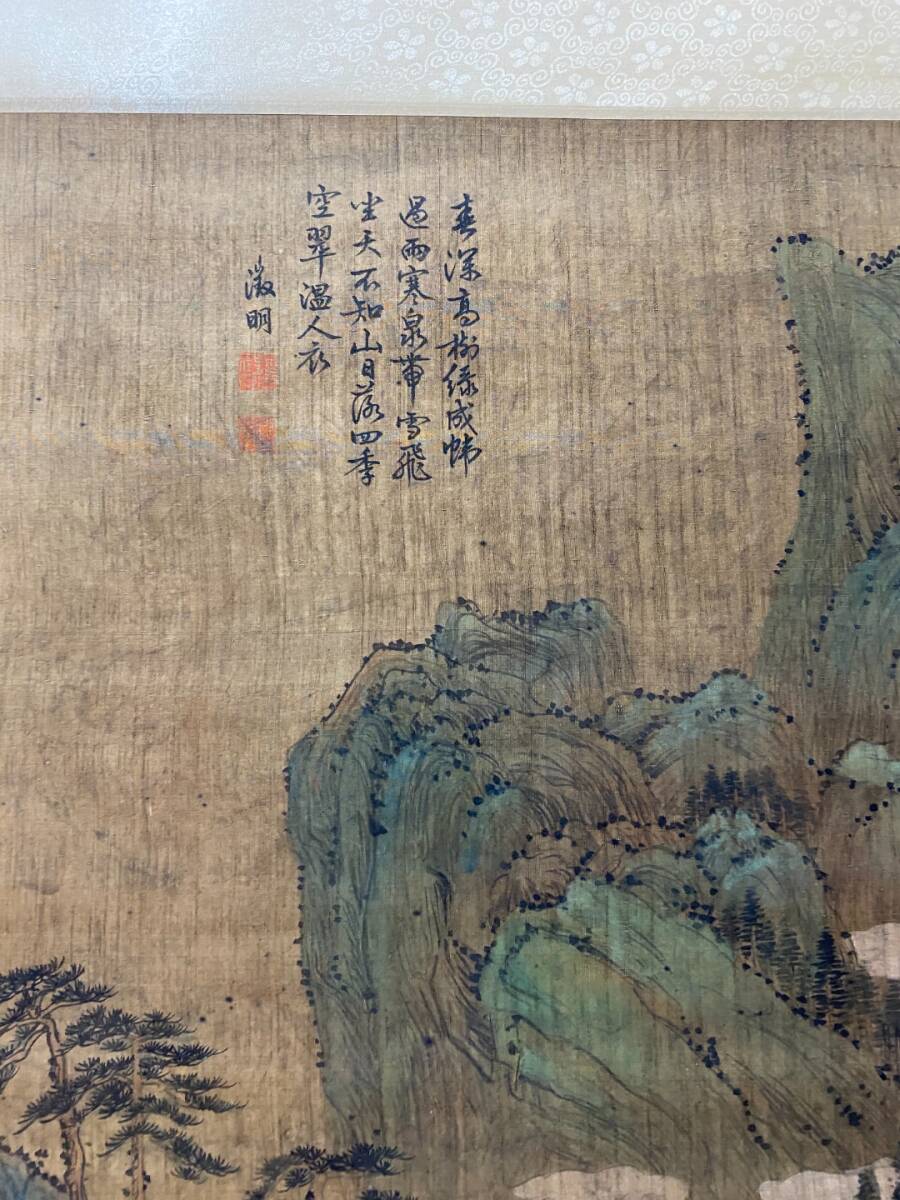 春深高樹绿成帏
過雨寒泉带雪飛
坐天不知山日落四季
空翠温人衣
徵明